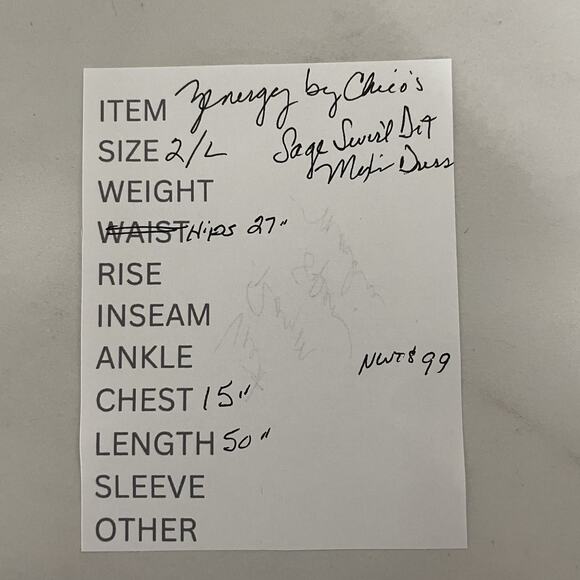 ITEM Zenergy by Chico's
SIZE 2/L Sage Swirl Dot
Maxi Dress
WEIGHT
WAIST Hips 27"
RISE
INSEAM
ANKLE NWT $99
CHEST 15"
LENGTH 50"
SLEEVE
OTHER